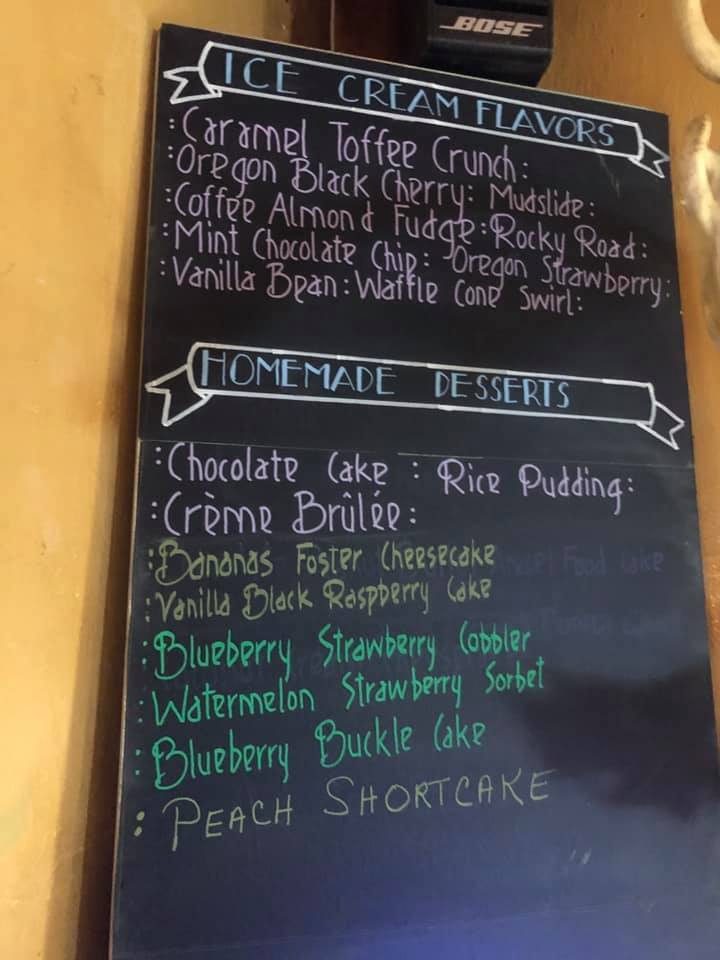 BOSE
ICE CREAM FLAVORS
:Caramel Toffee Crunch:
:Oregon Black Cherry: Mudslide:
:Coffee Almond Fudge:Rocky Road:
:Mint Chocolate Chip: Oregon Strawberry:
:Vanilla Bean:Waffle Cone Swirl:
HOMEMADE DESSERTS
:Chocolate Cake : Rice Pudding:
:Crème Brûlée:
:Bananas Foster Cheesecake
:Vanilla Black Raspberry Cake
:Blueberry Strawberry Cobbler
:Watermelon Strawberry Sorbet
:Blueberry Buckle Cake
: PEACH SHORTCAKE